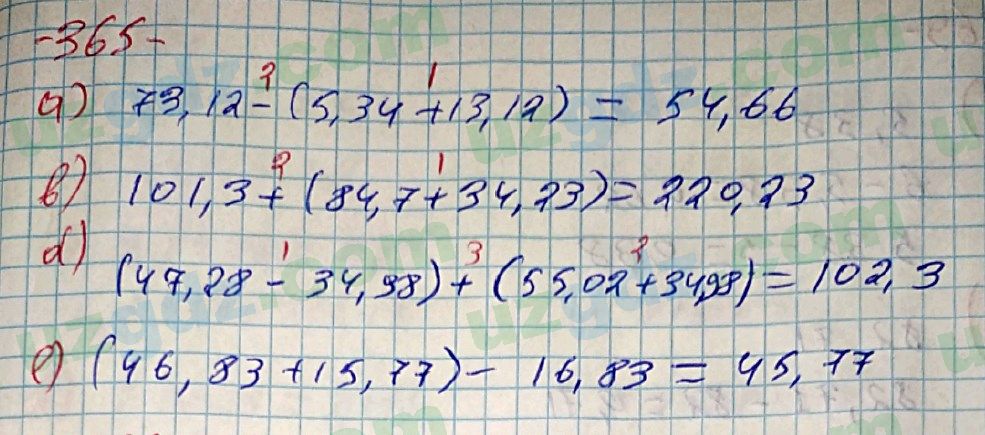 -365-
a) 73,12 - (5,34 + 13,12) = 54,66
b) 101,3 + (84,7 + 34,23) = 220,23
d) (47,28 - 34,98) + (55,02 + 34,98) = 102,3
e) (46,83 + 15,77) - 16,83 = 45,77